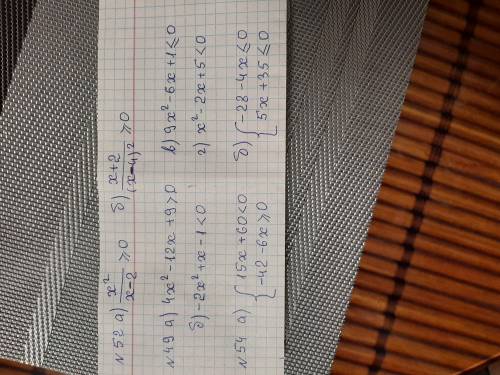 №52 а) x²/(x-2) ≥0   б) (x+2)/(x-4)² ≥0
№49 а) 4x²-12x+9>0   в) 9x²-6x+1≤0
б) -2x²+x-1<0   г) x²-2x+5<0
№54 а) { 15x+60<0   б) { -28-4x≤0
-42-6x≥0   5x+35≤0